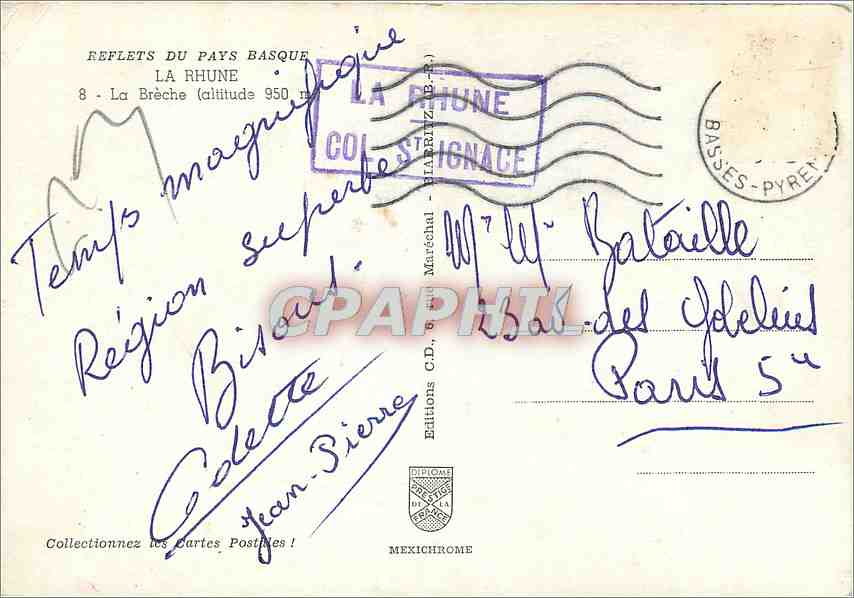 REFLETS DU PAYS BASQUE
LA RHUNE
8 - La Brèche (altitude 950 m
LA RHUNE
COL ST IGNACE
BASSES-PYREN
Temps magnifique
Région superbe
Bisous.
Odette
Jean-Pierre
Mr Me Bataille
23 Bd des Gobelins
Paris 5e
Editions C.D., 6, rue Maréchal - BIARRITZ (B.-P.)
CPAPHIL
DIPLOME
PRESTIGE
DE LA
FRANCE
MEXICHROME
Collectionnez les Cartes Postales !